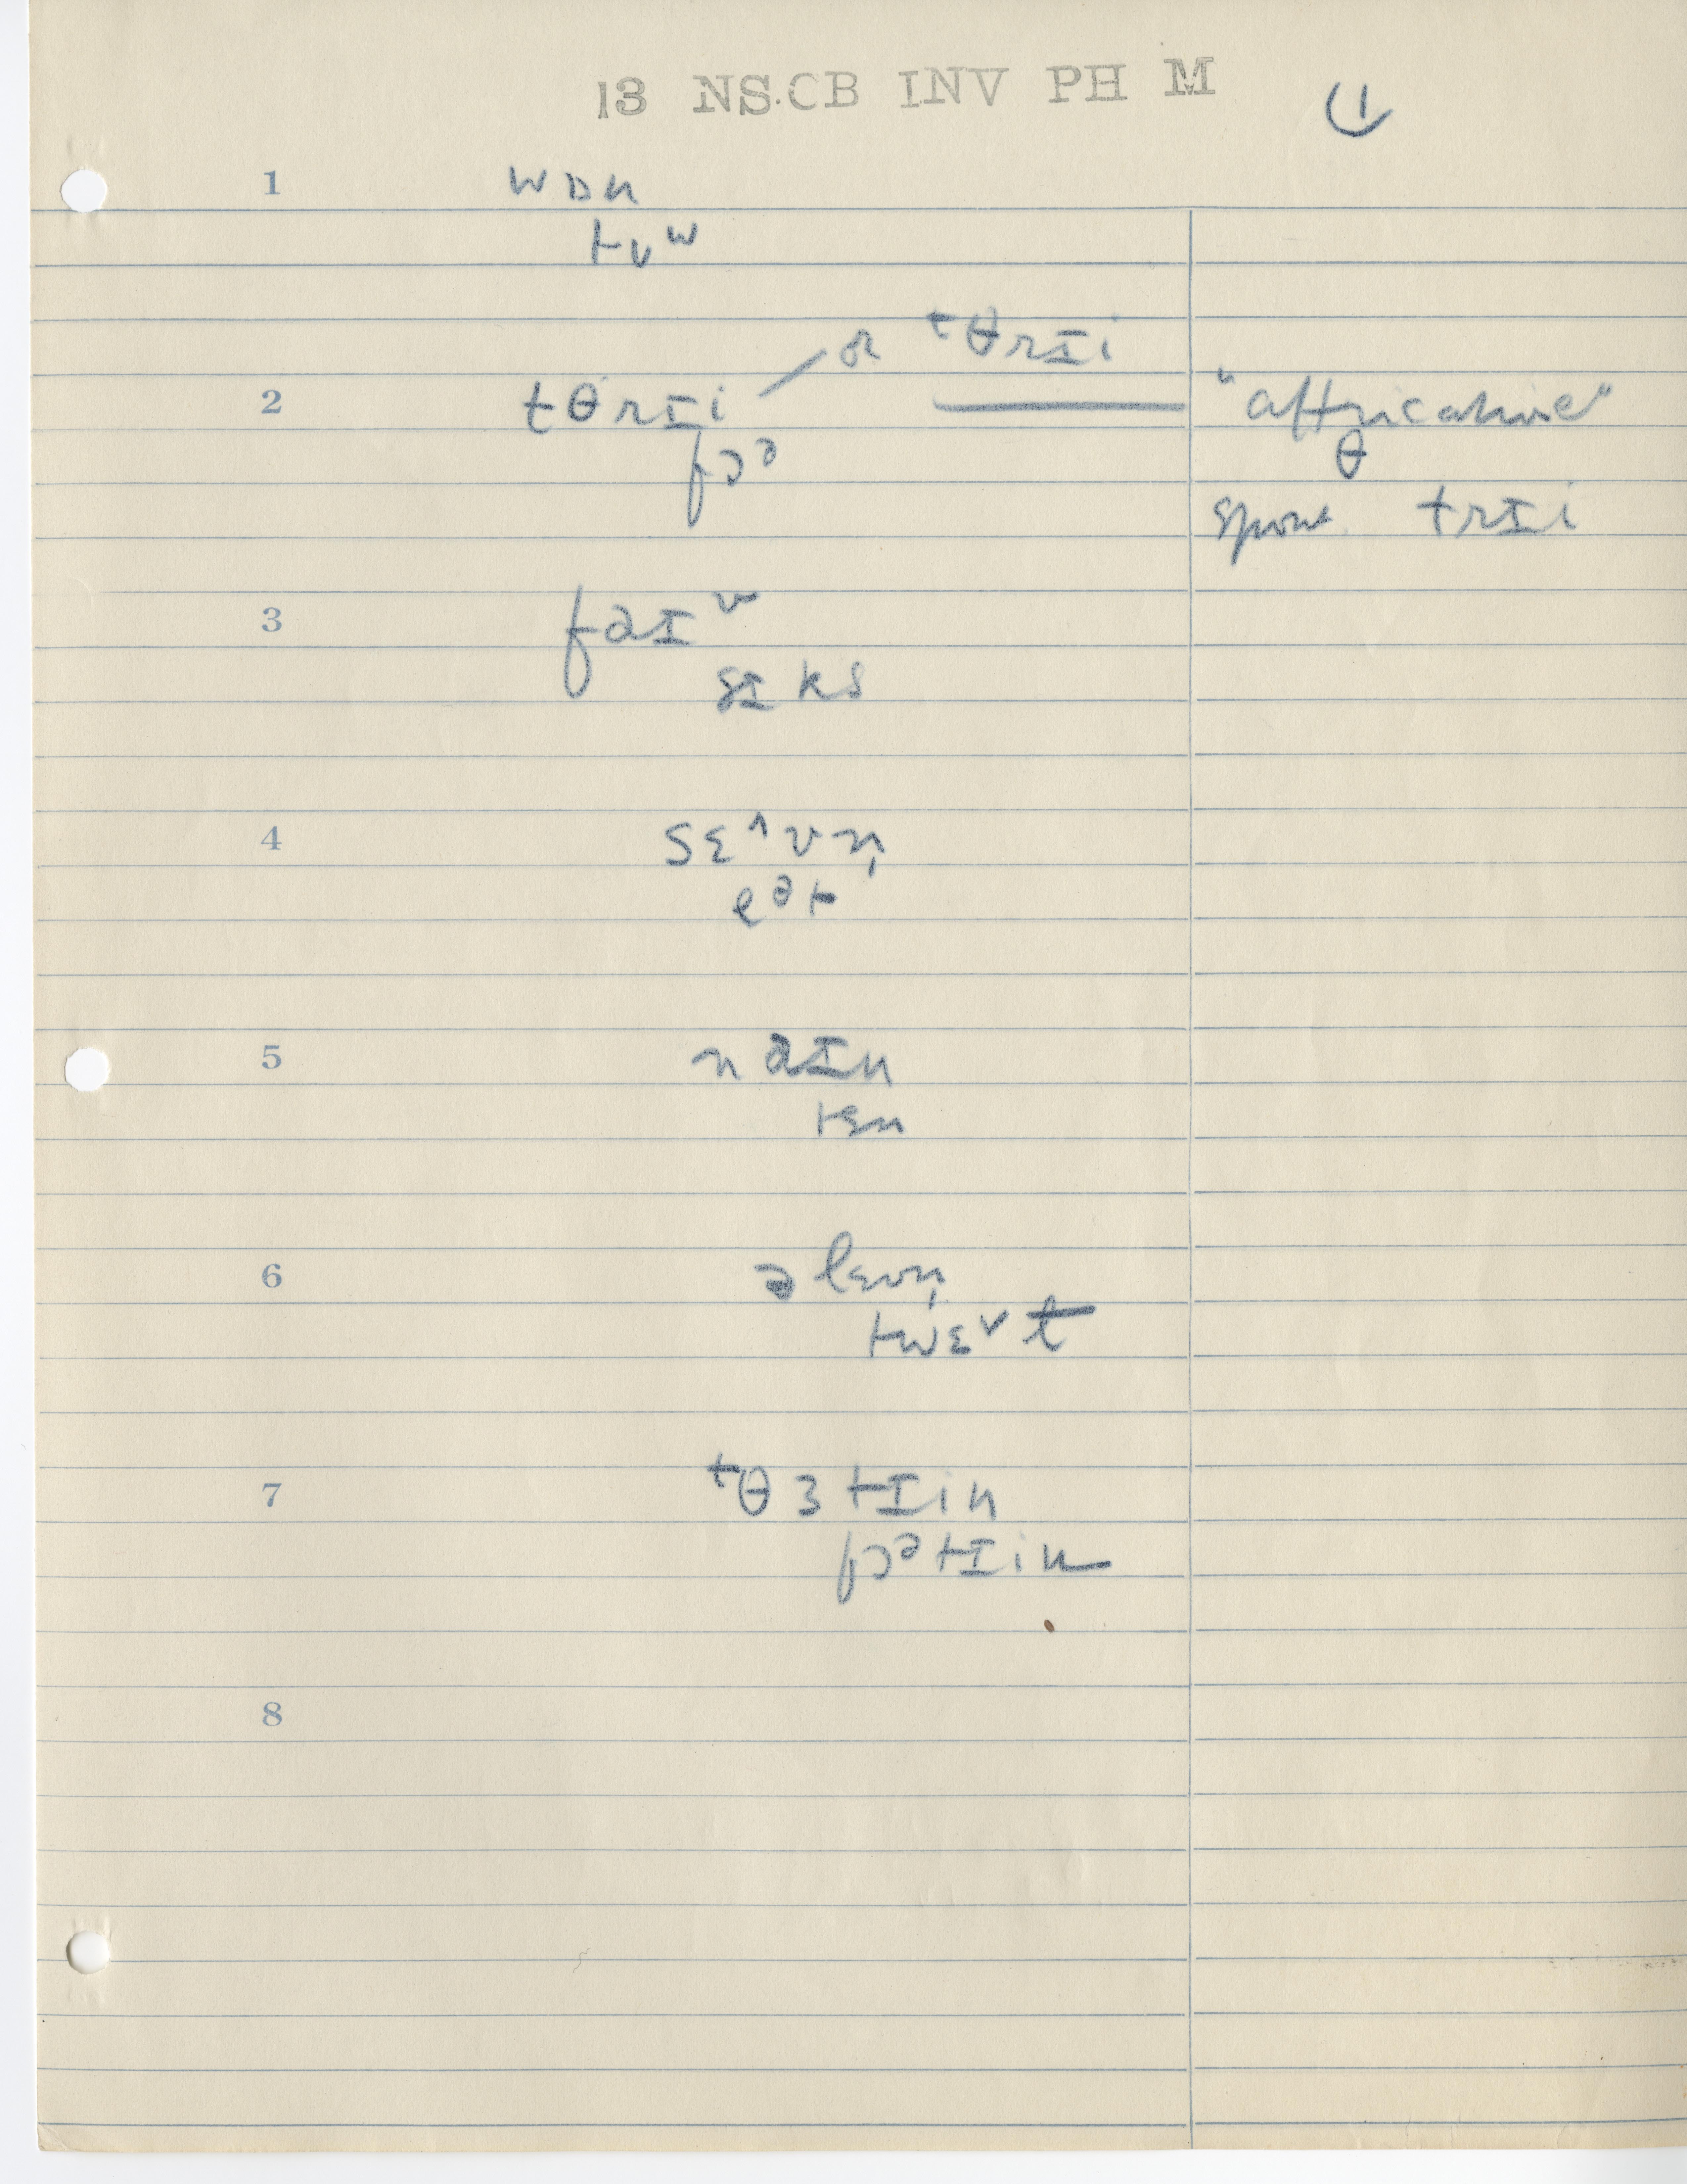 13 NS.CB INV PH M
1
1 wɒn
tʊʷ
or ᵗθrɪi
2 tθrɪi "affricative"
θ
fɔᵊ
spont. trɪi
3 faɪᵛ
sɪks
4 sɛ^vn̩
eᵊt
5 naɪn
tɛn
6 əlɛvn̩
twɛᵛt
7 ᵗθɜtɪin
fɔᵊtɪin
8